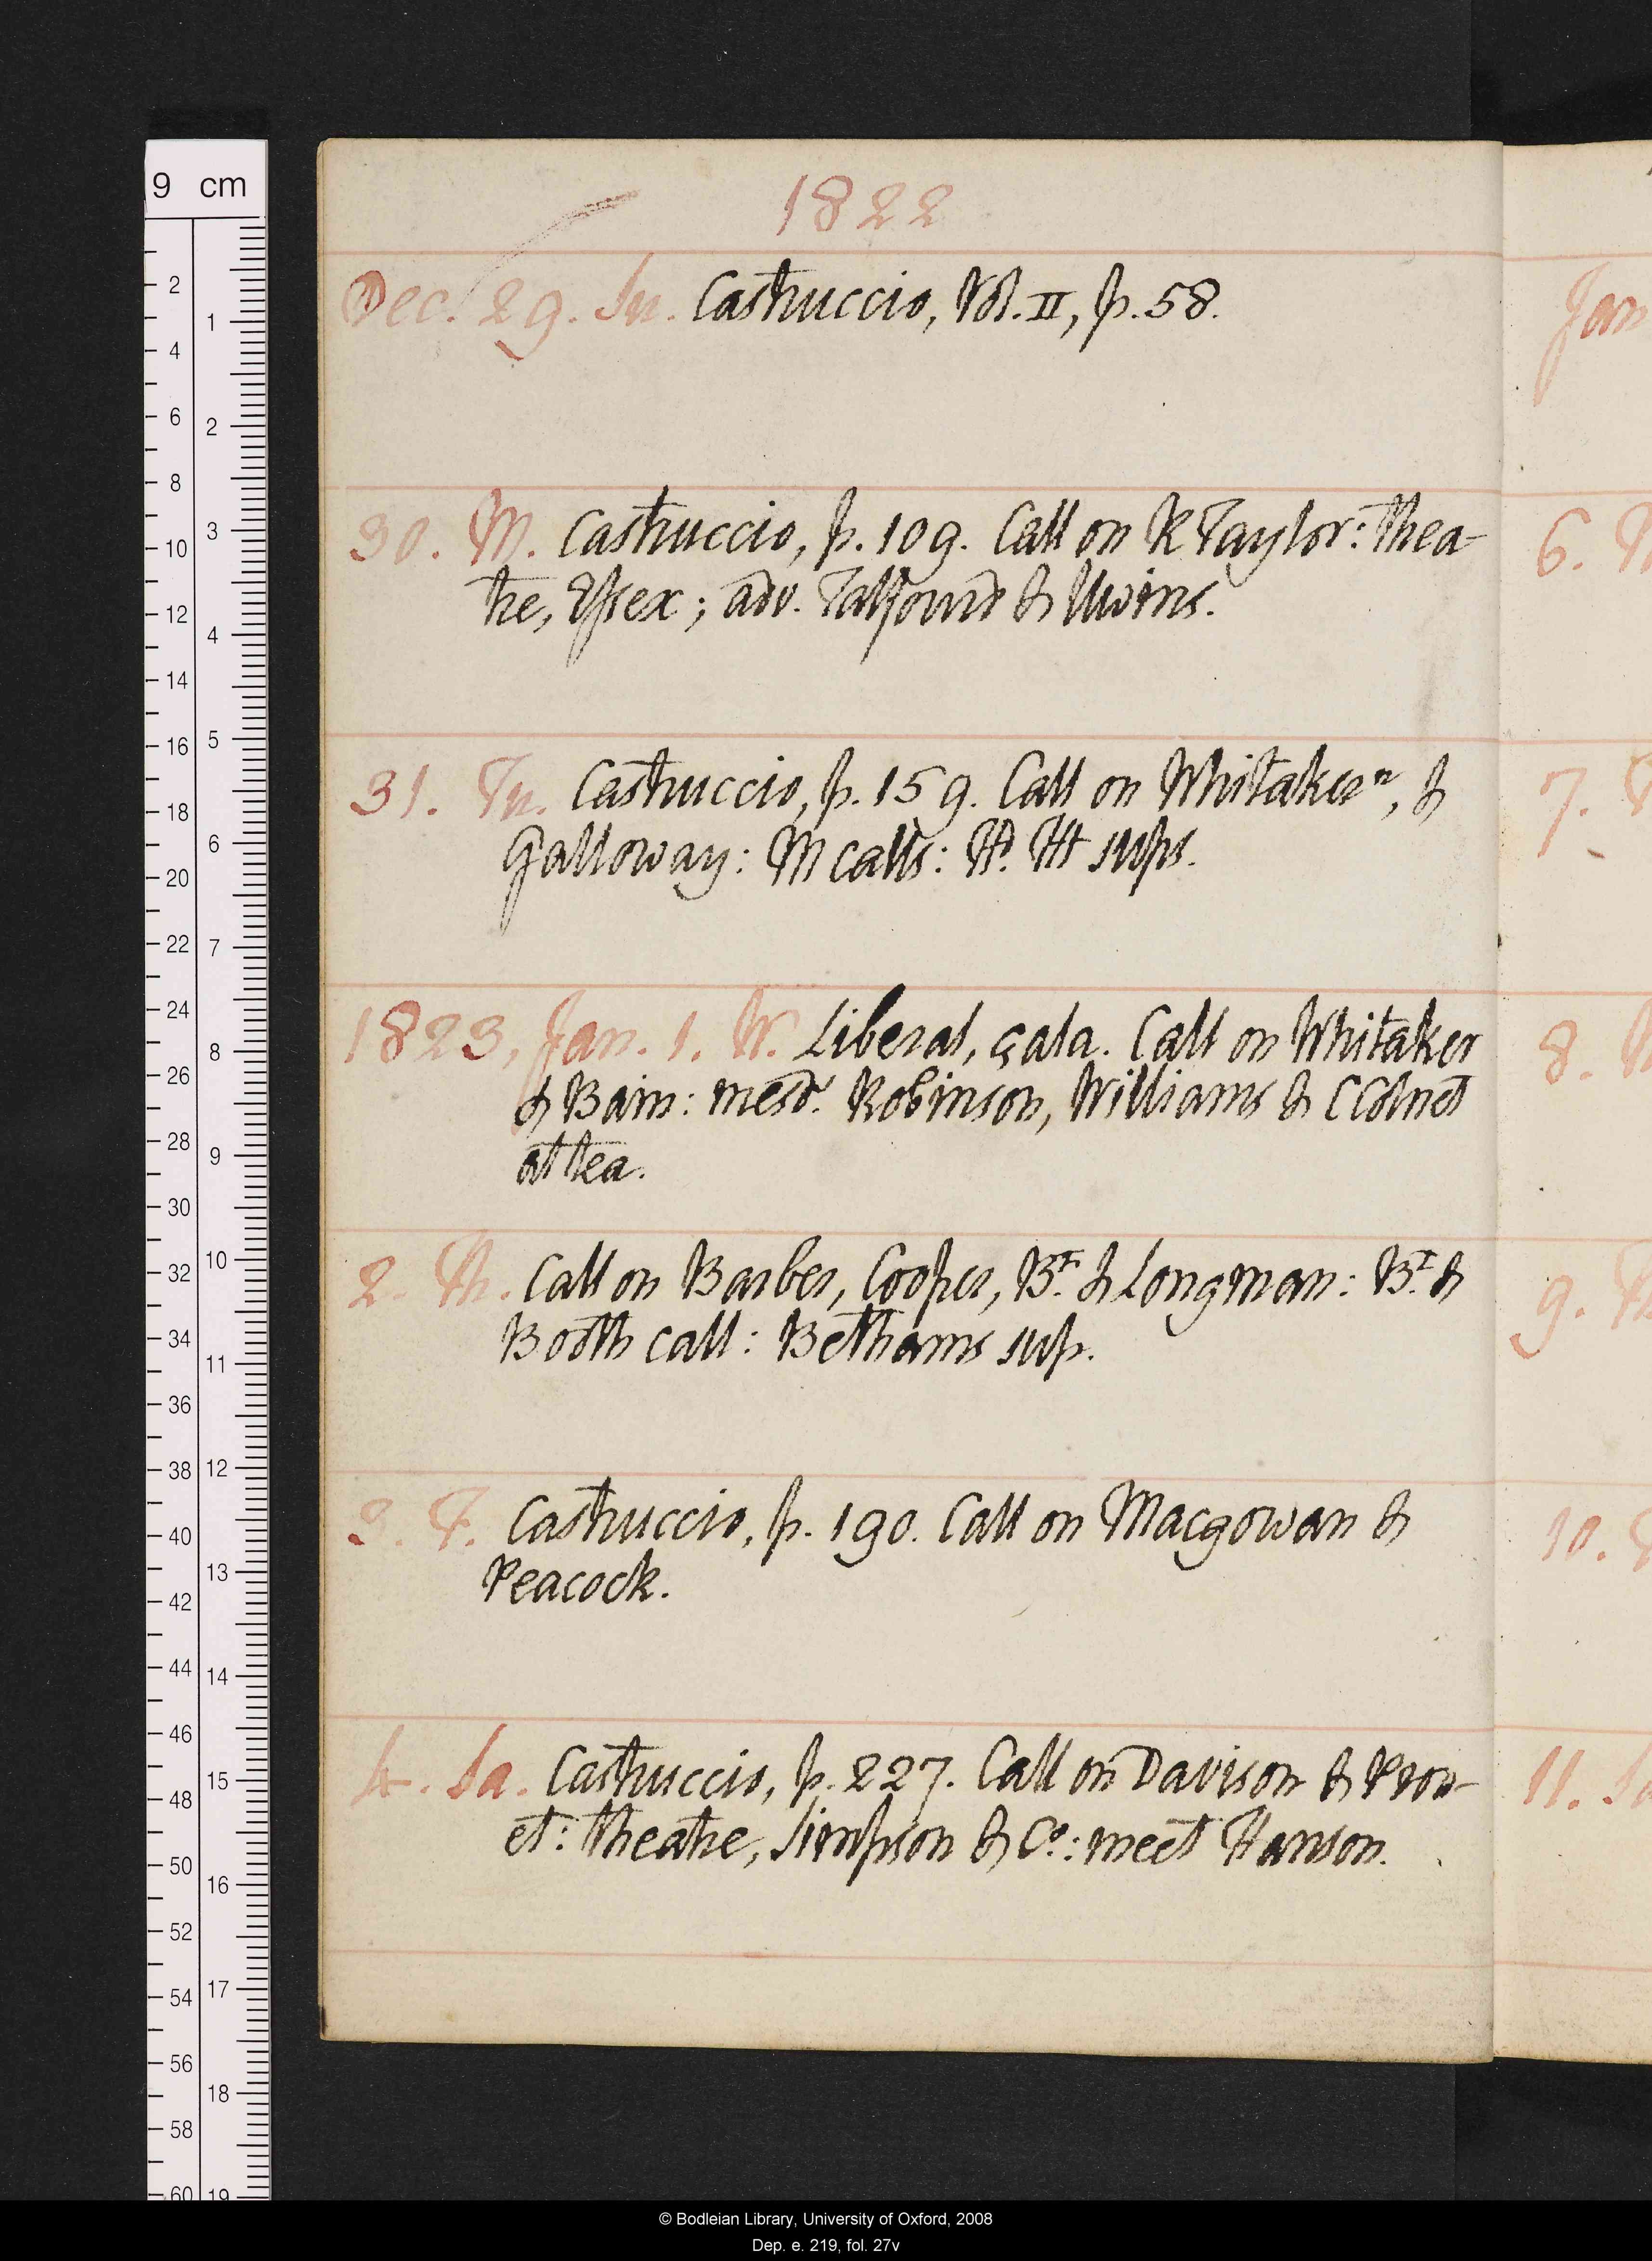 1822
Dec. 29. Su. Castruccio, Vol. II, p. 58.
30. M. Castruccio, p. 109. Call on R Taylor: Thea-
tre, Essex; adv. Talfourd & Uwins.
31. Tu. Castruccio, p. 159. Call on Whitaker n, &
Galloway: M calls: H. Ht sups.
1823, Jan. 1. W. Liberal, çala. Call on Whitaker
& Bain: mesd. Robinson, Williams & C Colnet
at tea.
2. Th. Call on Barber, Cooper, Bt. & Longman: Bt. &
Booth call: Bethams sup.
3. F. Castruccio, p. 190. Call on Macgowan &
Peacock.
4. Sa. Castruccio, p. 227. Call on Davison & Prow-
et: Theatre, Simpson & Co: meet Hanson.
Jan
6.
7.
8.
9.
10.
11.
9 cm
2 4 6 8 10 12 14 16 18 20 22 24 26 28 30 32 34 36 38 40 42 44 46 48 50 52 54 56 58 60
1 2 3 4 5 6 7 8 9 10 11 12 13 14 15 16 17 18 19
© Bodleian Library, University of Oxford, 2008
Dep. e. 219, fol. 27v